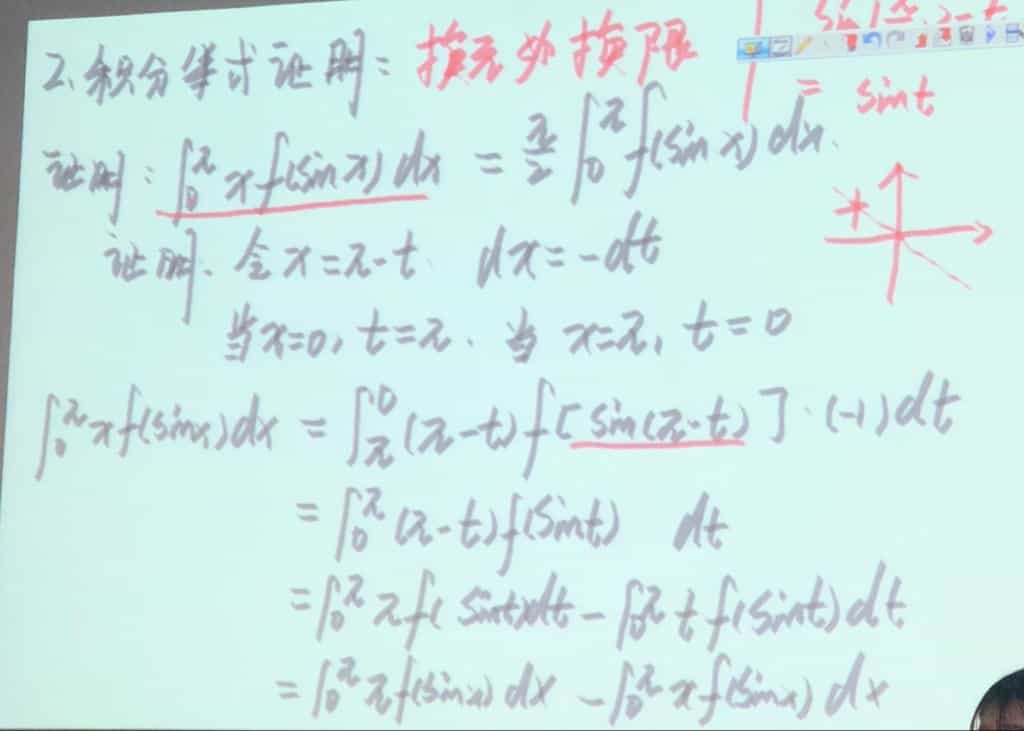 2、积分等式证明：换元必换限
= sint
证明：∫₀^π x f(sin x) dx = π/2 ∫₀^π f(sin x) dx.
证明、令 x = π-t. dx = -dt
当x=0, t=π. 当 x=π, t=0
∫₀^π x f(sinx) dx = ∫_π^0 (π-t) f[sin(π-t)]·(-1)dt
= ∫₀^π (π-t) f(sint) dt
= ∫₀^π π f(sint)dt - ∫₀^π t f(sint) dt
= ∫₀^π π f(sinx) dx - ∫₀^π x f(sinx) dx